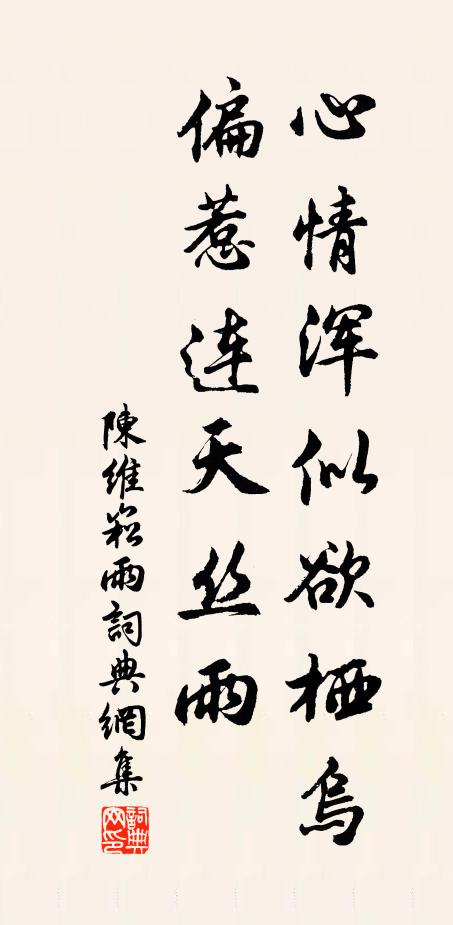 心情浑似欲栖乌
偏惹连天丝雨
陳維崧雨詞典網集
詞典
网印